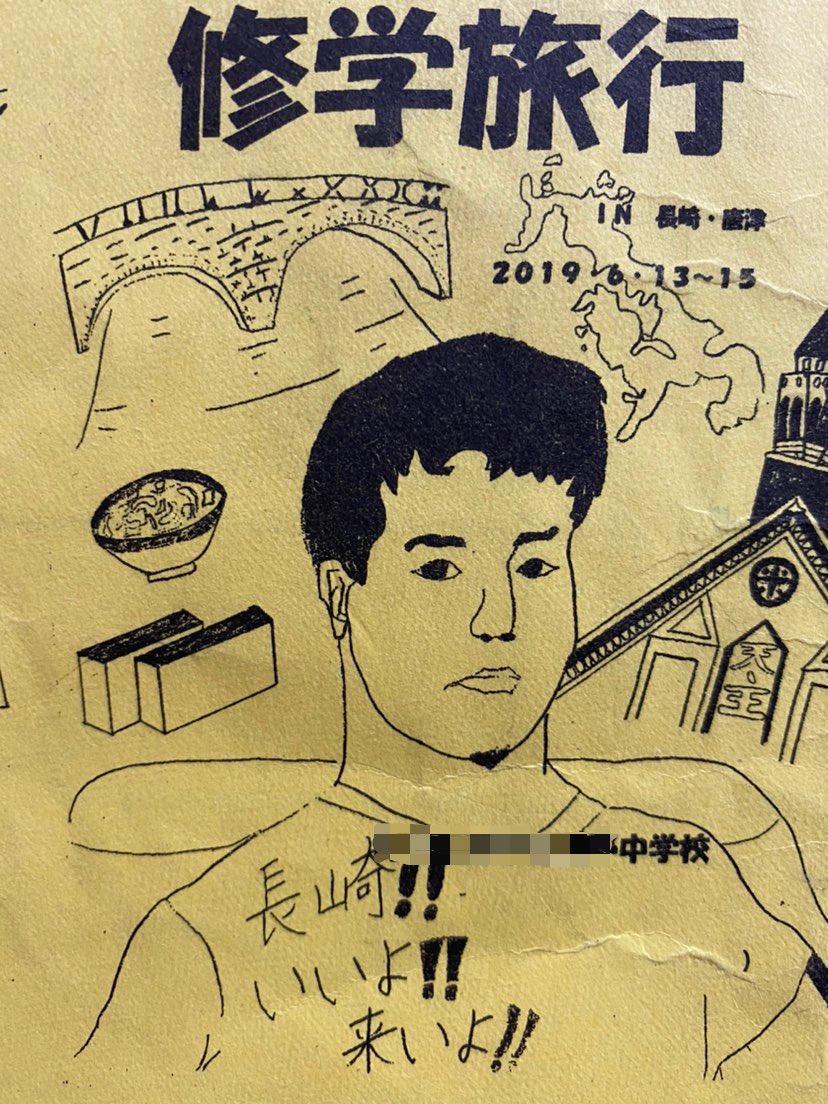 修学旅行
IN 長崎・唐津
2019・6・13~15
天主
中学校
長崎!!
いいよ!!
来いよ!!